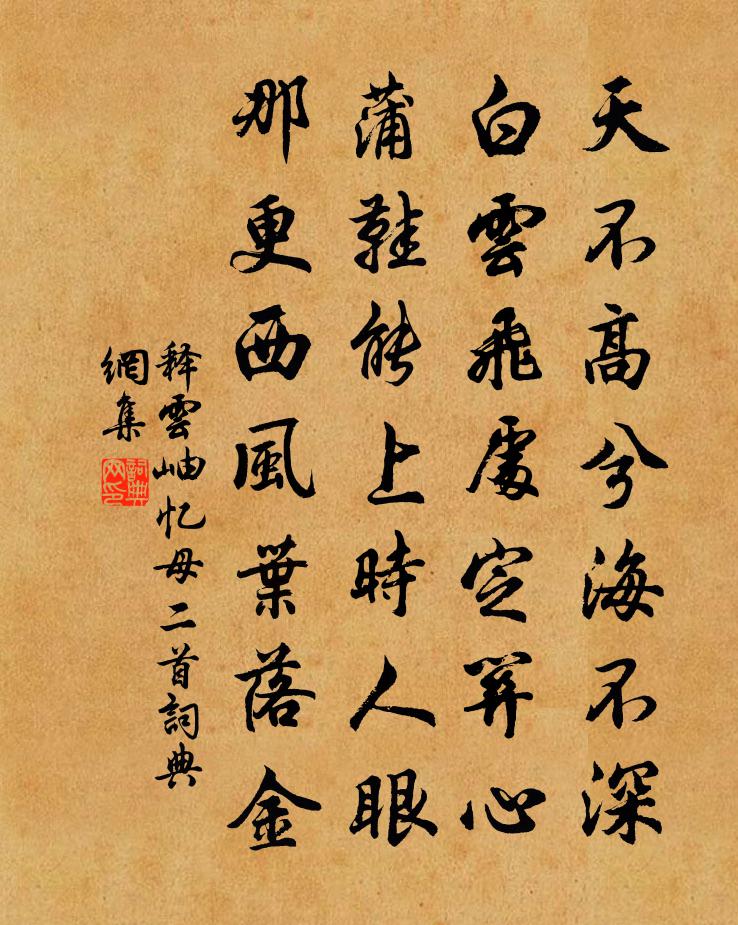 天不高兮海不深
白雲飛處定關心
蒲鞋能上時人眼
那更西風葉落金
释雲岫忆母二首詞典
網集
詞典网印